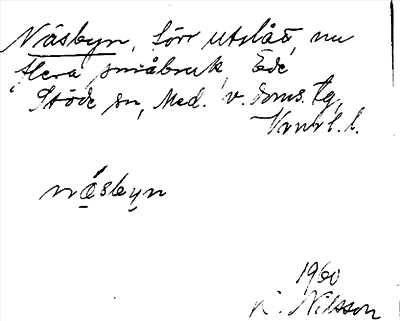 Näsbyn, förr utslått, nu
flera småbruk, Ede,
Stöde sn, Med. v. doms. tg,
Vnrl. l.
näsbyn
1960
K. Nilsson